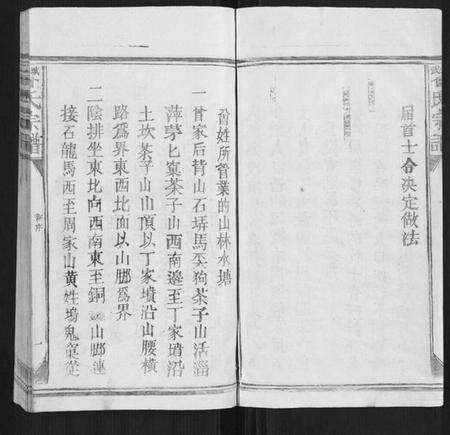 届首士合决定做法
曾氏宗譜
曾姓所管業的山林水塘
一曾家后背山石塝馬 狗茶子山活淄
萍茅匕寬茶子山西南邊至丁家 沿
土坎茶子山山頂以丁家墳沿山腰横
路爲界東西北面以山脚爲界
二陰排坐東北向西南東至銅 山脚連
接石龍馬西至周家山黄姓塢鬼 從